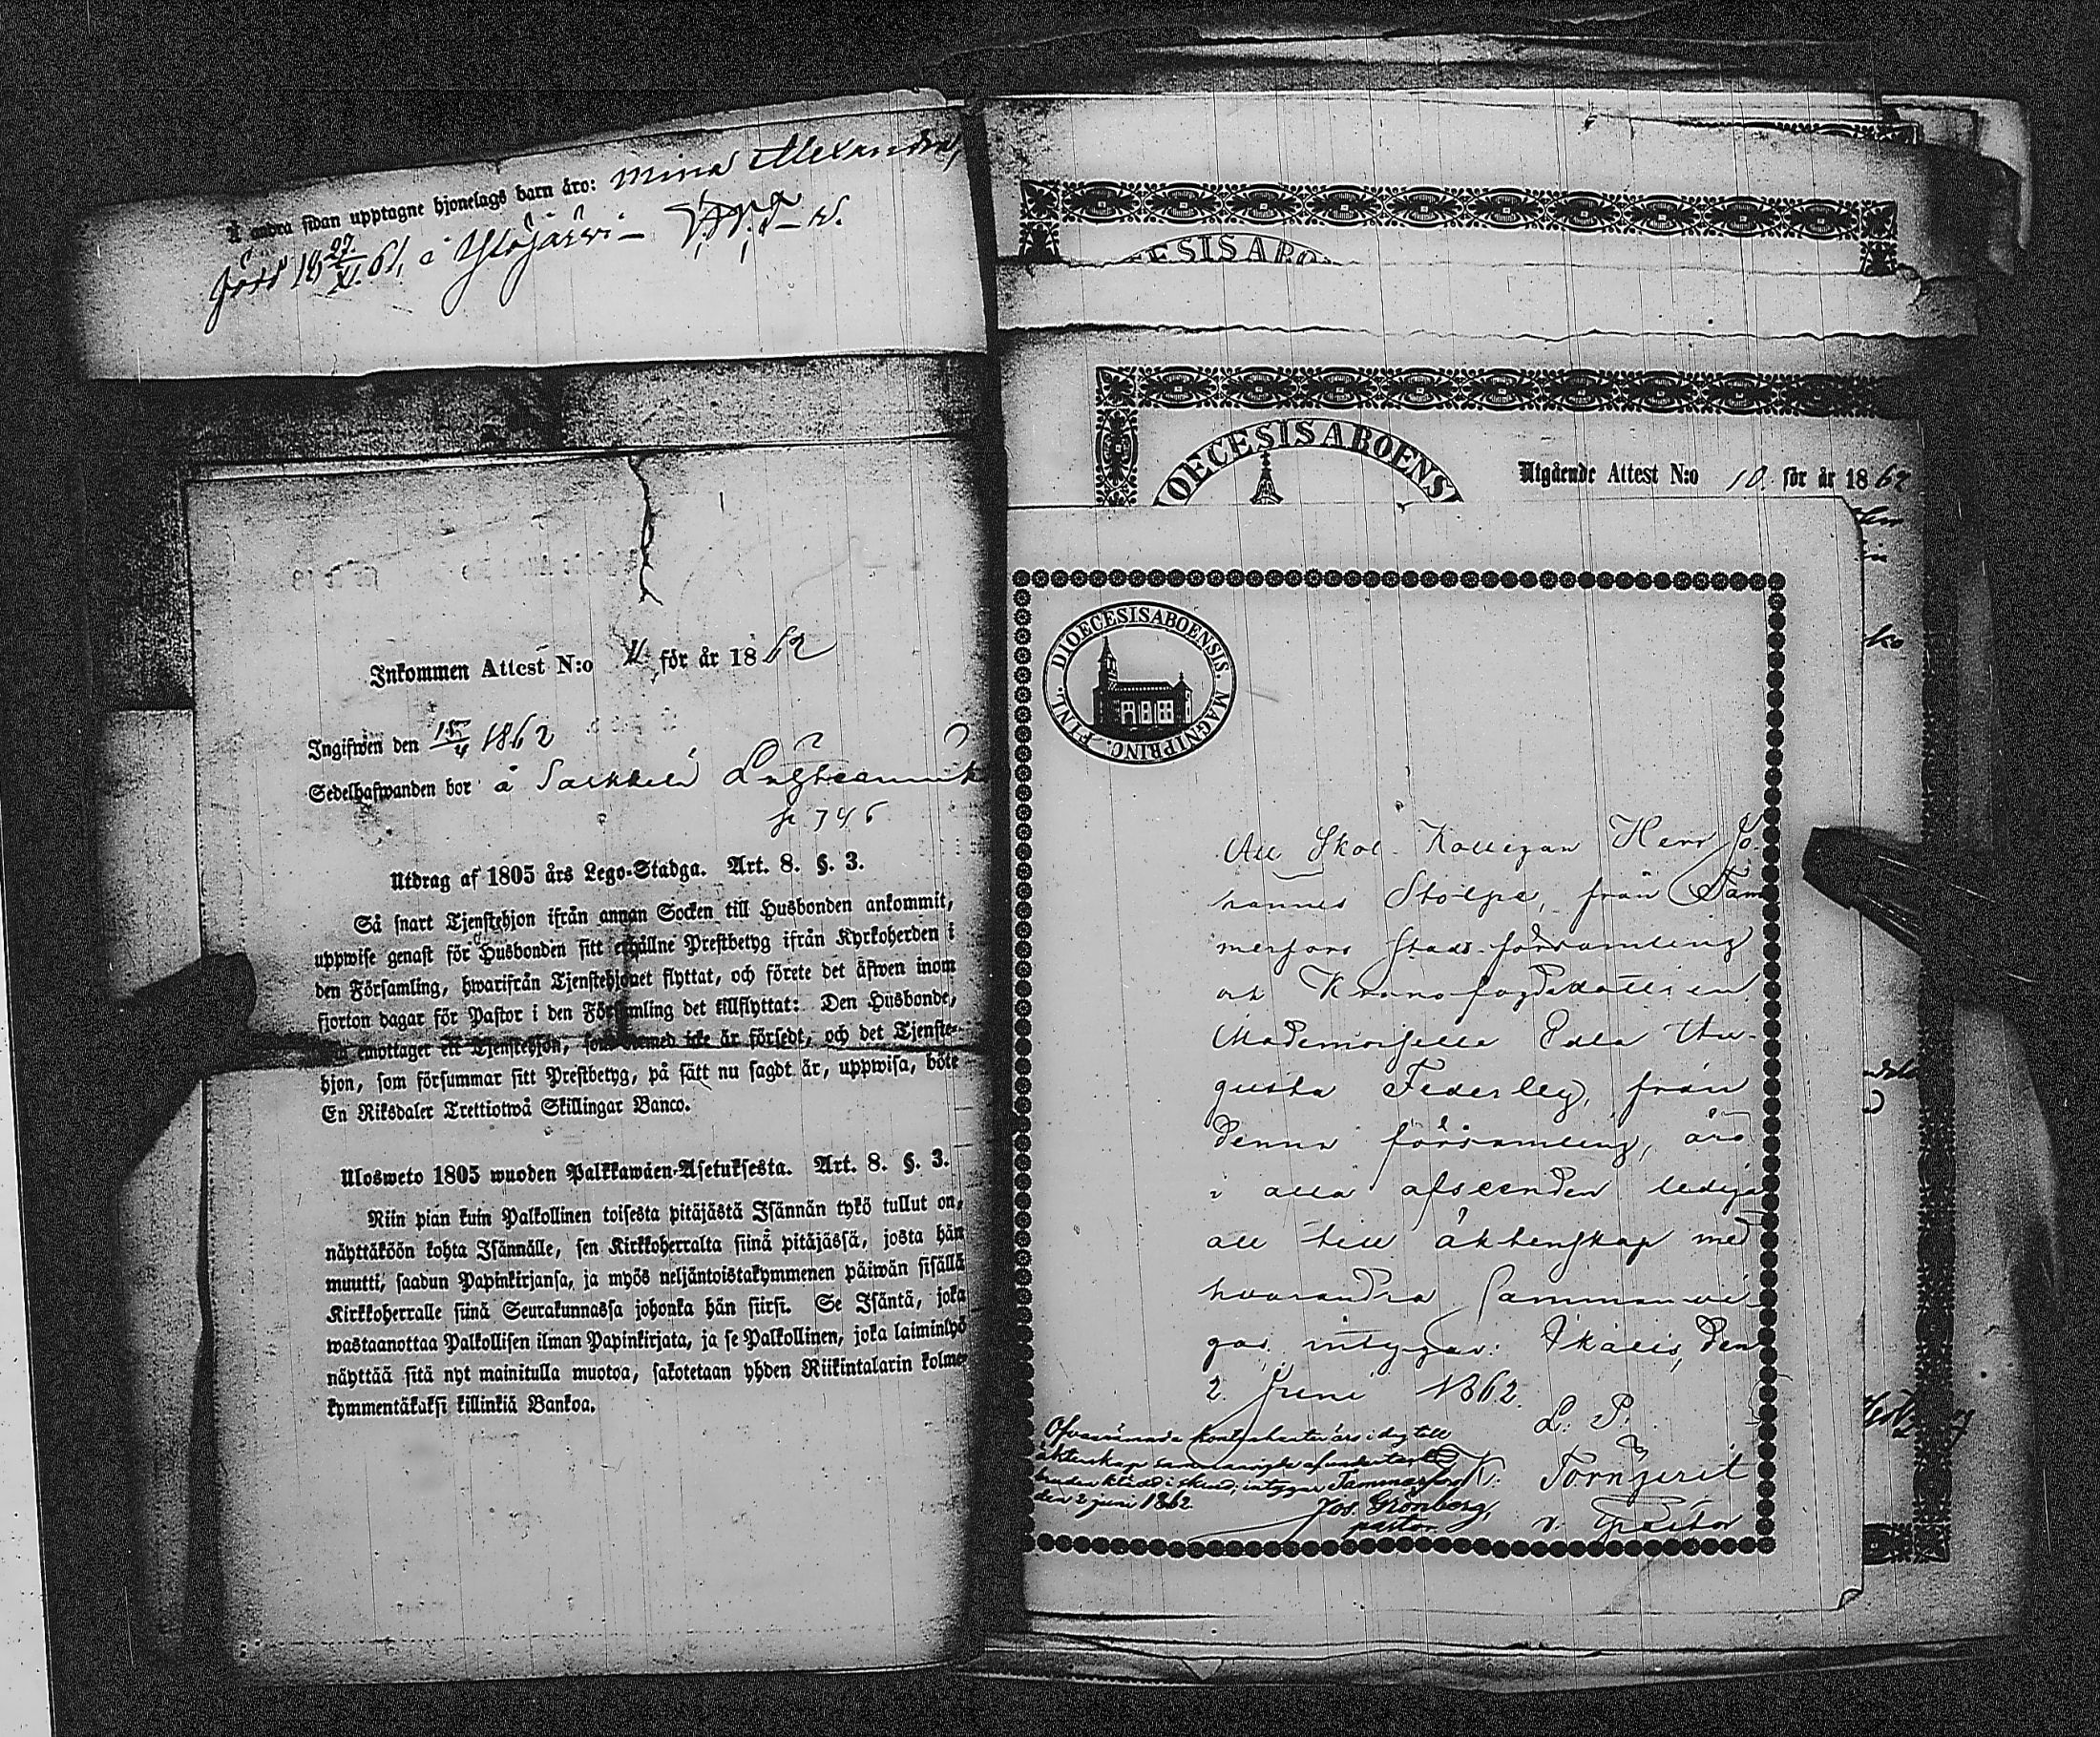 Å andra sidan upptagne hjonelags barn äro: Mina Alexandra,
född 18 27/XI. 61, i Ylöjärvi
Inkommen Attest N:o för år 1862
Ingifwen den 15/4 1862
Sedelhafwanden bor å Sarkkila
p 746
Utdrag af 1805 års Lego-Stadga. Art. 8. §. 3.
Så snart Tjenstehjon ifrån annan Socken till Husbonden ankommit,
uppwise genast för Husbonden sitt erhållne Prestbetyg ifrån Kyrkoherden i
den Församling, hwarifrån Tjenstehjonet flyttat, och förete det äfwen inom
fjorton dagar för Pastor i den Församling det tillflyttat: Den Husbonde,
som emottager ett Tjenstehjon, som dermed icke är försedt, och det Tjenste-
hjon, som försummar sitt Prestbetyg, på sätt nu sagdt är, uppwisa, böte
En Riksdaler Trettiotwå Skillingar Banco.
Ulosweto 1805 wuoden Palkkawäen-Asetuksesta. Art. 8. §. 3.
Niin pian kuin Palkollinen toisesta pitäjästä Isännän tykö tullut on,
näyttäköön kohta Isännälle, sen Kirkkoherralta siinä pitäjässä, josta hän
muutti, saadun Papinkirjansa, ja myös neljäntoistakymmenen päiwän sisällä
Kirkkoherralle siinä Seurakunnassa johonka hän siirsi. Se Isäntä, joka
wastaanottaa Palkollisen ilman Papinkirjata, ja se Palkollinen, joka laiminlyö
näyttää sitä nyt mainitulla muotoa, sakotetaan yhden Riikintalarin kolme-
kymmentäkaksi killinkiä Bankoa.
ŒCESIS ABO
DIOECESIS ABOENS
Utgående Attest N:o 10 för år 1862
DIOECESIS ABOENSIS. MAGNI PRINC. FINL.
Att Skol Kollegan Herr Jo-
hannes Stolpe, från Tam-
merfors Stads församling
och Kronofogdedottren
Mademoiselle Edla Au-
gusta Federley, från
denna församling, äro
i alla afseenden lediga
att till äktenskap med
hvarandra sammanvi-
gas, intygar: Ikalis, den
2 Juni 1862.
L. P.
K. Törnqvist
v. Pastor
Ofvannämnda kontrahenter äro i dag till
äktenskap sammanvigde af undertecknad
bruden klädd i skrud, intygar Tammerfors
den 2 juni 1862
Jos. Grönberg,
pastor.